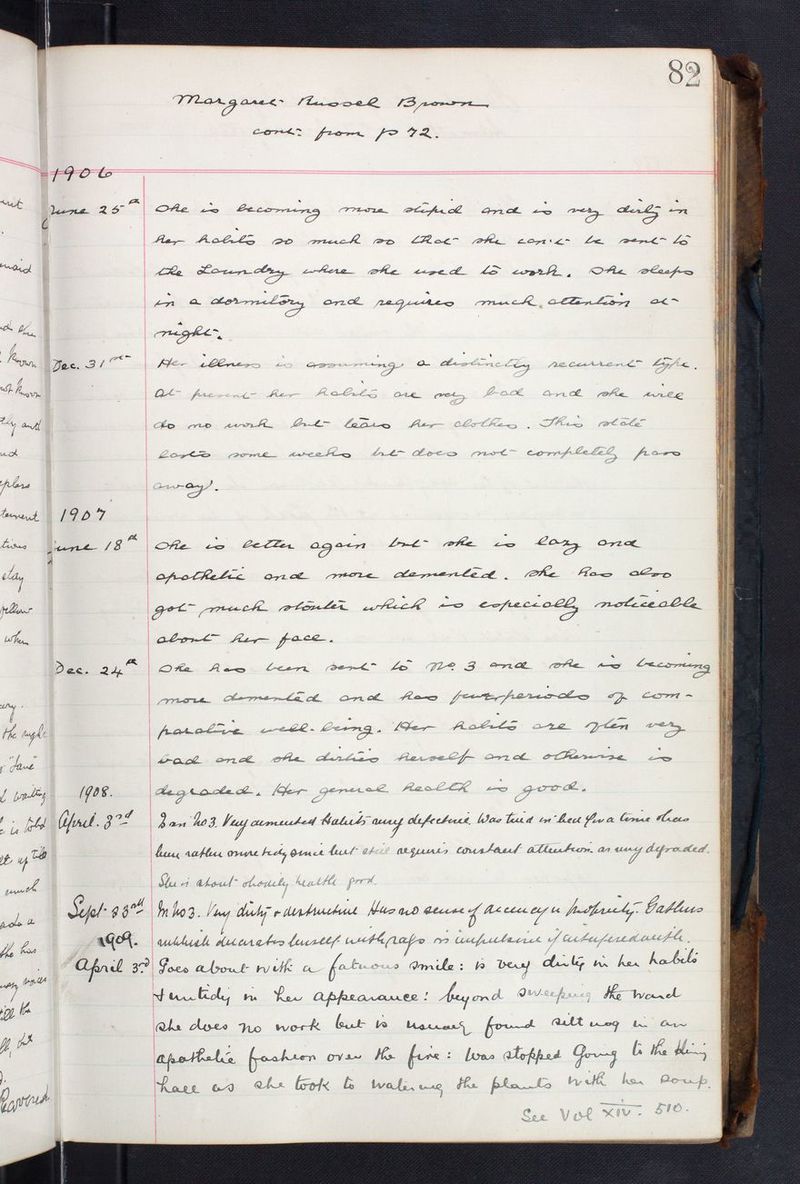 82
Margaret Russel Brown
cont: from p 72.
1906
June 25th She is becoming more stupid and is very dirty in
her habits so much so that she can't be sent to
the Laundry where she used to work. She sleeps
in a dormitory and requires much attention at
night.
Dec. 31st Her illness is assuming a distinctly recurrent type.
At present her habits are very bad and she will
do no work but tears her clothes. This state
lasts some weeks but does not completely pass
away.
1907
June 18th She is better again but she is lazy and
apathetic and more demented. She has also
got much stouter which is especially noticeable
about her face.
Dec. 24th She has been sent to No. 3 and she is becoming
more demented and has fewer periods of com-
parative well-being. Her habits are often very
bad and she dirties herself and otherwise is
degraded. Her general health is good.
1908.
April. 3rd Is in No 3. Very demented Habits very defective. Was tried in bed for a time & has
been rather more tidy since but still requires constant attention. as very degraded.
She is stout & bodily health good
Sept 23rd In No 3. Very dirty & destructive Has no sense of decency or propriety. Gathers
rubbish decorates herself with rags is impulsive if interfered with.
1909.
April 3rd Goes about with a fatuous smile: is very dirty in her habits
& untidy in her appearance: beyond sweeping the ward
she does no work but is usually found sitting in an
apathetic fashion over the fire: was stopped going to the dining
hall as she took to watering the plants with her soup.
See Vol XIV. 510.